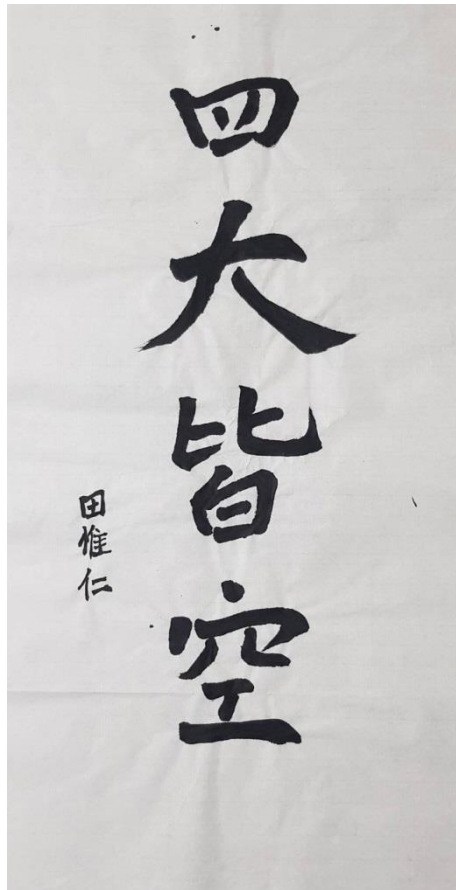 四大皆空
田惟仁